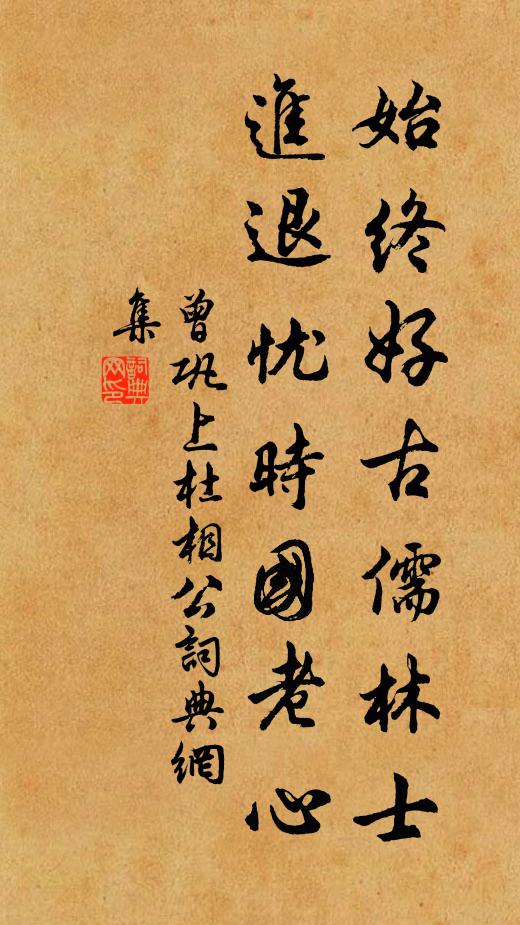 始终好古儒林士
進退忧時國老心
曾巩上杜相公詞典網
集
詞典网印